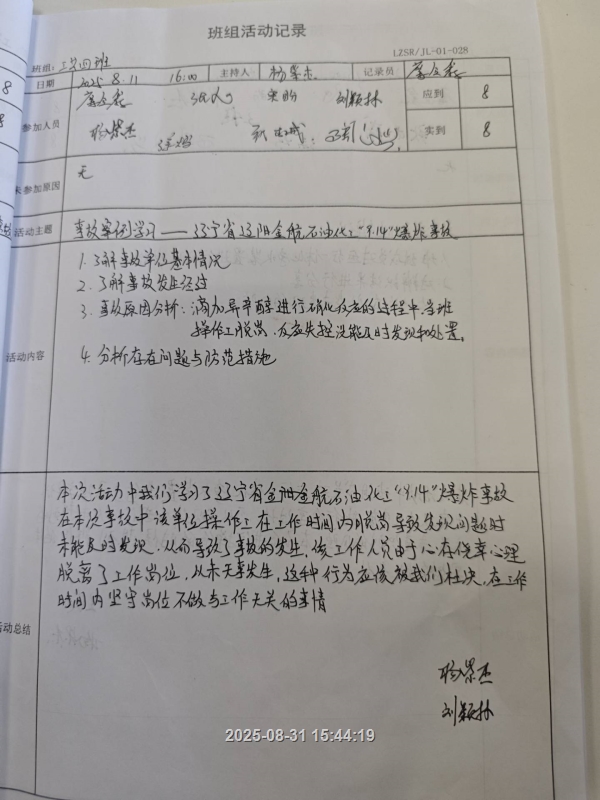 班组活动记录
LZSR/JL-01-028
班组: 三贫四班
日期 2025.8.11 16:00 主持人 杨景杰 记录员
参加人员 刘颖林 应到 8
杨景杰 实到 8
未参加原因 无
活动主题 事故案例学习——辽宁省辽阳金航石油化工"9.14"爆炸事故
活动内容
1. 了解事故单位基本情况
2. 了解事故发生经过
3. 事故原因分析: 滴加异辛醇进行硝化反应的过程中,当班
操作工脱岗,反应失控没能及时发现和处置。
4. 分析存在问题与防范措施
活动总结
本次活动中我们学习了辽宁省金阳金航石油化工"9.14"爆炸事故
在本次事故中该单位操作工在工作时间内脱岗导致发现问题时
未能及时发现.从而导致了事故的发生,该工作人员由于心存侥幸心理
脱离了工作岗位,从未天事发生,这种行为应该被我们杜决,在工作
时间内坚守岗位不做与工作无关的事情
杨景杰
刘颖林
2025-08-31 15:44:19